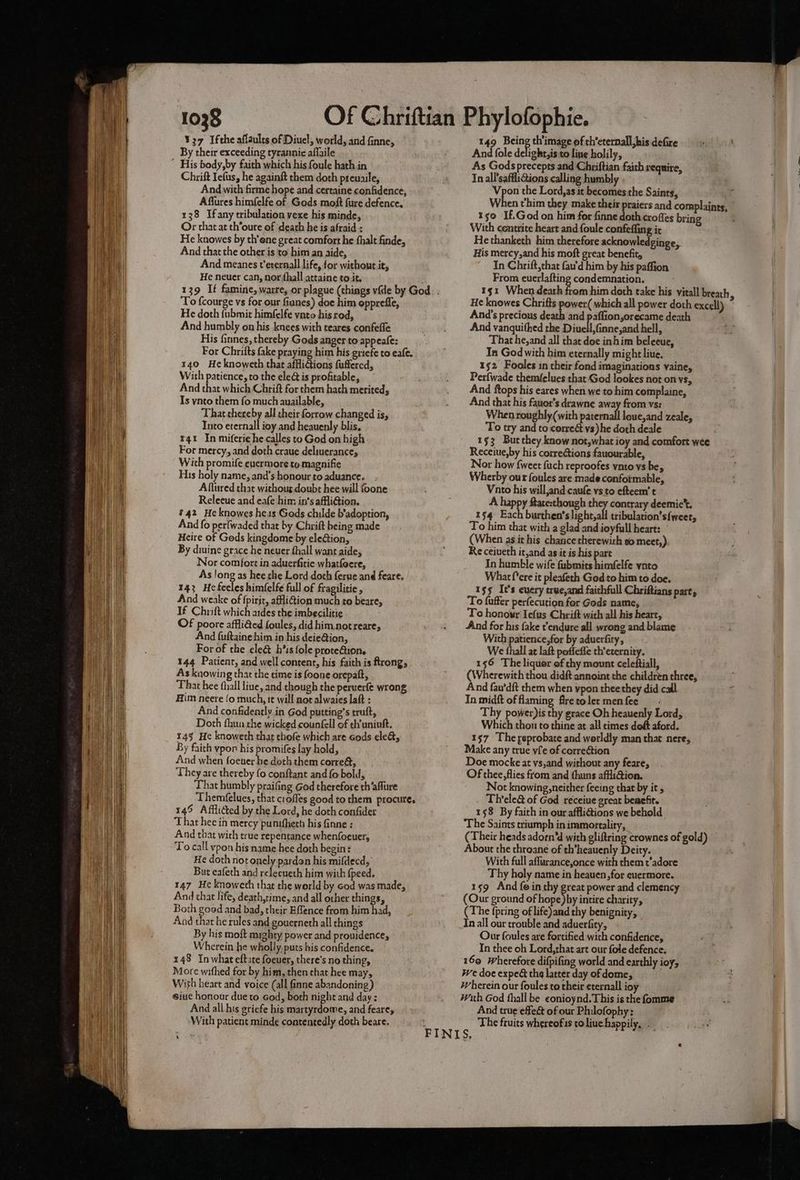 1038 Of Chriſtian Phyloſophie.
137 If the aſſaults of Diuel, world, and ſinne,
By their exceeding tyrannie aſſaile
His body, by faith which his ſoule hath in
Chriſt Ieſus, he againſt them doth preuaile,
And with firme hope and certaine confidence,
Aſſures himſelfe of Gods moſt ſure defence.
138 If any tribulation vexe his minde,
Or that at th'oure of death he is afraid:
He knowes by th'one great comfort he ſhalt finde,
And that the other is to him an aide,
And meanes t'eternall life, for without it,
He neuer can, nor ſhall attaine to it.
139 If famine, warre, or plague (things vſde by God
To ſcourge vs for our ſinnes) doe him oppreſſe,
He doth ſubmit himſelfe vnto his rod,
And humbly on his knees with teares confeſſe
His ſinnes, thereby Gods anger to appeaſe:
For Chriſts ſake praying him his griefe to eaſe.
140 He knoweth that afflictions ſuffered,
With patience, to the elect is profitable,
And that which Chriſt for them hath merited,
Is vnto them ſo much auailable,
That thereby all their ſorrow changed is,
Into eternall ioy and heauenly blis.
141 In miſerie he calles to God on high
For mercy, and doth craue deliuerance,
With promiſe euermore to magnifie
His holy name, and's honour to aduance.
Aſſured that without doubt hee will ſoone
Releeue and eaſe him in's affliction.
142 He knowes he is Gods childe b'adoption,
And ſo perſwaded that by Chriſt being made
Heire of Gods kingdome by election,
By diuine grace he neuer ſhall want aide,
Nor comfort in aduerſitie whatſoere,
As long as hee the Lord doth ſerue and feare.
143 He feeles himſelfe full of fragilitie,
And weake of ſpirit, affliction much to beare,
If Chriſt which aides the imbecilitie
Of poore afflicted ſoules, did him not reare,
And ſuſtaine him in his deiection,
For of the elect h'is ſole protection.
144 Patient, and well content, his faith is ſtrong,
As knowing that the time is ſoone orepaſt,
That hee ſhall liue, and though the peruerſe wrong
Him neere ſo much, it will not alwaies laſt:
And confidently in God putting's truſt,
Doth ſhun the wicked counſell of th'uniuſt.
145 He knoweth that thoſe which are Gods elect,
By faith vpon his promiſes lay hold,
And when ſoeuer he doth them correct,
They are thereby ſo conſtant and ſo bold,
That humbly praiſing God therefore th'aſſure
Themſelues, that croſſes good to them procure.
146 Afflicted by the Lord, he doth conſider
That hee in mercy puniſheth his ſinne:
And that with true repentance whenſoeuer,
To call vpon his name hee doth begin:
He doth not onely pardon his miſdeed,
But eaſeth and releeueth him with ſpeed.
147 He knoweth that the world by God was made,
And that life, death, time, and all other things,
Both good and bad, their Eſſence from him had,
And that he rules and gouerneth all things
By his moſt mighty power and prouidence,
Wherein he wholly puts his confidence.
148 In what eſtate ſoeuer, there's no thing,
More wiſhed for by him, then that hee may,
With heart and voice (all ſinne abandoning)
Giue honour due to God, both night and day:
And all his griefe his martyrdome, and feare,
With patient minde contentedly doth beare.
149 Being th'image of th'eternall, his deſire
And ſole delight, is to liue holily,
As Gods precepts and Chriſtian faith require,
In all'safflictions calling humbly
Vpon the Lord, as it becomes the Saints,
When t'him they make their praiers and complaints,
150 If God on him for ſinne doth croſſes bring
With contrite heart and ſoule confeſſing it
He thanketh him therefore acknowledginge,
His mercy, and his moſt great benefit,
In Chriſt, that ſau'd him by his paſſion
From euerlaſting condemnation.
151 When death from him doth take his vitall breath,
He knowes Chriſts power (which all power doth excell)
And's precious death and paſſion, orecame death
And vanquiſhed the Diuell, ſinne, and hell,
That he, and all that doe in him beleeue,
In God with him eternally might liue.
152 Fooles in their fond imaginations vaine,
Perſwade themſelues that God lookes not on vs,
And ſtops his eares when we to him complaine,
And that his fauor's drawne away from vs:
When roughly (with paternall loue, and zeale,
To try and to correct vs) he doth deale
153 But they know not, what ioy and comfort wee
Receiue, by his corrections fauourable,
Nor how ſweet ſuch reproofes vnto vs be,
Wherby our ſoules are made conformable,
Vnto his will, and cauſe vs to eſteem't
A happy ſtate: though they contrary deemie't.
154 Each burthen's light, all tribulation's ſweet,
To him that with a glad and ioyfull heart:
(When as it his chance therewith to meet,)
Receiueth it, and as it is his part
In humble wiſe ſubmits himſelfe vnto
What ſ'ere it pleaſeth God to him to doe.
155 It's euery true, and faithfull Chriſtians part,
To ſuffer perſecution for Gods name,
To honour Ieſus Chriſt with all his heart,
And for his ſake t'endure all wrong and blame
With patience, for by aduerſity,
We ſhall at laſt poſſeſſe th'eternity.
156 The liquer of thy mount celeſtiall,
(Wherewith thou didſt annoint the children three,
And ſau'dſt them when vpon thee they did call
In midſt of flaming fire to let men ſee
Thy power) is thy grace Oh heauenly Lord,
Which thou to thine at all times doſt aford.
157 The reprobate and worldly man that nere,
Make any true vſe of correction
Doe mocke at vs, and without any feare,
Of thee, flies from and ſhuns affliction.
Not knowing, neither ſeeing that by it,
Th'elect of God receiue great benefit.
158 By faith in our afflictions we behold
The Saints triumph in immortality,
(Their heads adorn'd with gliſtring crownes of gold)
About the throane of th'heauenly Deity.
With full aſſurance, once with them t'adore
Thy holy name in heauen, for euermore.
159 And ſo in thy great power and clemency
(Our ground of hope) by intire charity,
(The ſpring of life) and thy benignity,
In all our trouble and aduerſity,
Our ſoules are fortified with confidence,
In thee oh Lord, that art our ſole defence.
160 Wherefore diſpiſing world and earthly ioy,
We doe expect the latter day of dome,
Wherein our ſoules to their eternall ioy
With God ſhall be conioynd. This is the ſomme
And true effect of our Philoſophy:
The fruits whereof is to liue happily.
FINIS.